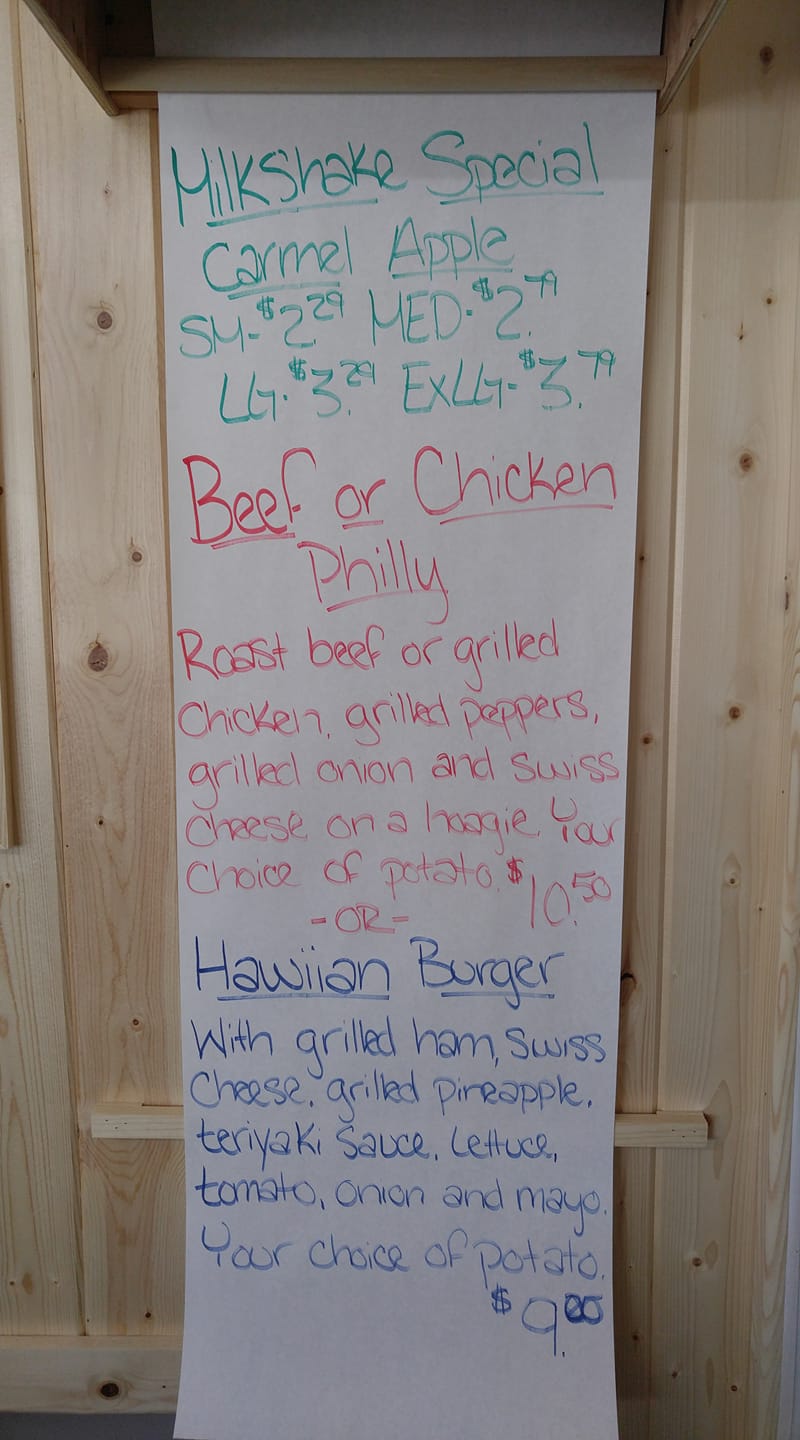 Milkshake Special
Carmel Apple
SM-$2.29 MED-$2.79
LG-$3.29 EXLG-$3.79
Beef or Chicken
Philly
Roast beef or grilled
chicken, grilled peppers,
grilled onion and swiss
cheese on a hoagie. Your
choice of potato. $10.50
-OR-
Hawiian Burger
With grilled ham, swiss
cheese, grilled pineapple,
teriyaki sauce, lettuce,
tomato, onion and mayo.
Your choice of potato.
$9.00